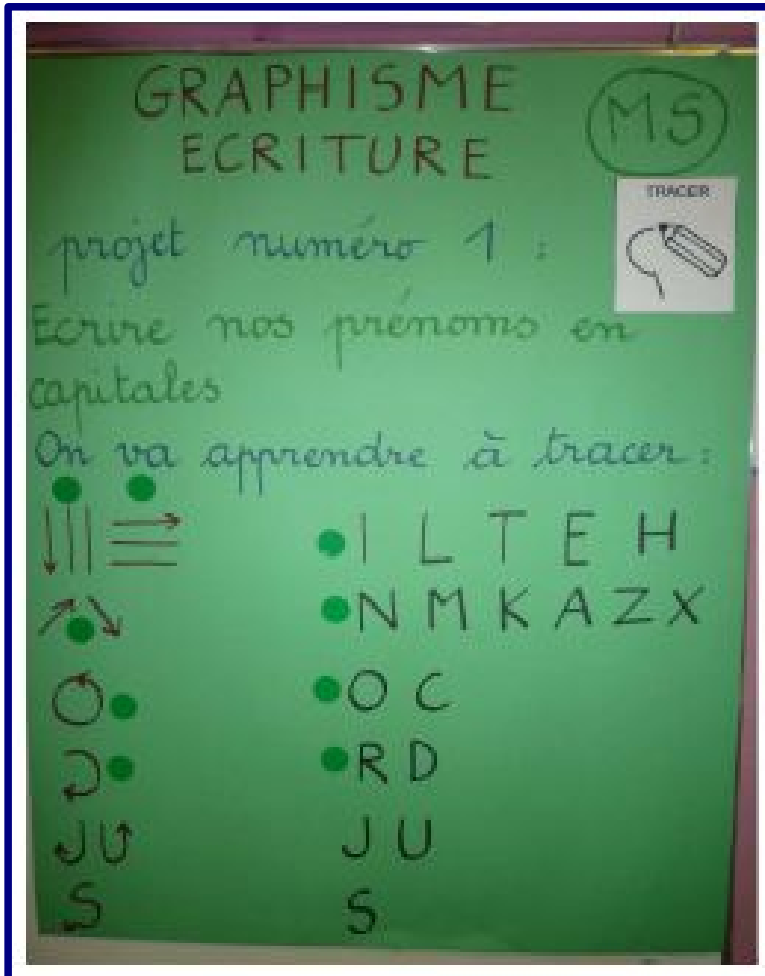 GRAPHISME
ECRITURE
MS
TRACER
projet numéro 1 :
Ecrire nos prénoms en
capitales
On va apprendre à tracer :
I L T E H
N M K A Z X
O C
R D
J U J U
S S